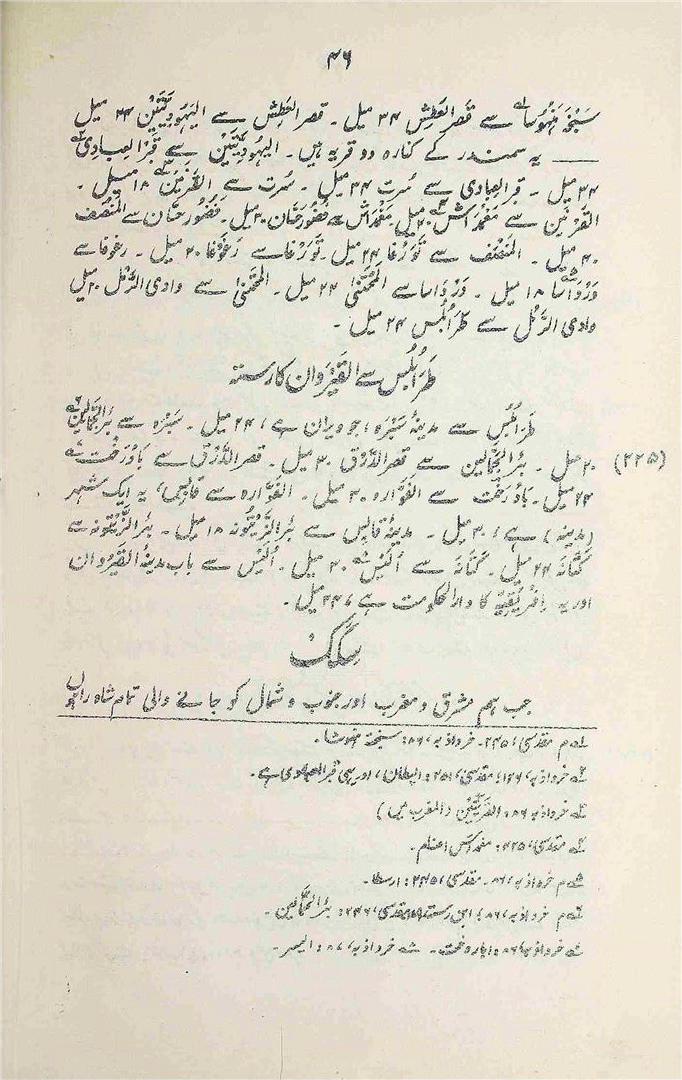 ۴۶
سَبْخَہ مَنہُوسا سے قصر العَطِش ۳۴ میل ۔ قصر العَطِش سے الیَہُودِیَّتَیْن ۲۴ میل
یہ سمندر کے کنارہ دو قریہ ہیں ۔ الیہُودِیَّتَیْن سے قَبْر العِبادِی
۳۴ میل ۔ قبر العِبادی سے سُرت ۳۴ میل ۔ سُرت سے القَرْنَیْن ۱۸ میل ۔
القَرْنَیْن سے مَغْمَداش ۲۰ میل مَغْمَداش سے قصُور حَسَّان ۳۰ میل ۔ قصُور حسّان سے المُنْصَف
۴۰ میل ۔ المُنْصَف سے تَوَرْغا ۲۴ میل ۔ تَوَرْغا سے رَغُوغا ۲۰ میل ۔ رغوغا سے
وَرْدَاسا ۱۸ میل ۔ وَرْدَاسا سے المُجْتَنیٰ ۲۴ میل ۔ المُجْتَنیٰ سے وادی الرَّمْل ۲۰ میل
وادی الرَّمْل سے طَرابُلُس ۲۴ میل ۔
طَرابُلُس سے القَیْرَوان کا رستہ
طَرابُلُس سے مدینۂ سَبْرَہ ، جو ویران ہے ، ۲۴ میل ۔ سَبْرَہ سے بئر الجَمَّالین
(۲۲۵) ۲۰ میل ۔ بئر الجَمَّالین سے قصر الدَّرَق ۳۰ میل ۔ قصر الدَّرَق سے بادُرَخْت
۲۴ میل ۔ بادُرَخْت سے الفَوَّارہ ۳۰ میل ۔ الفَوَّارہ سے قابِس ، یہ ایک شہر
(مدینہ) ہے ، ۳۰ میل ۔ مدینۂ قابِس سے بئر الزَّیْتُونہ ۱۸ میل ۔ بئر الزَّیْتُونہ سے
کَتَّانَہ ۲۴ میل ۔ کَتَّانَہ سے اَلْیَس ۳۰ میل ۔ اَلْیَس سے باب مدینۂ القَیْرَوان
اور یہ اِفْرِیْقِیَّہ کا دار الحکومت ہے ، ۲۴ میل ۔
سِکَک
جب ہم مشرق و مغرب اور جنوب و شمال کو جانے والی تمام شاہ راہوں
۱ م مقدسی ، ۲۴۵ ۔ خرداذبہ ، ۸۶ : سبخۃ منہوشا ۔
۲ خرداذبہ ، ۸۶ ؛ مقدسی ، ۲۴۵ : اور یہی قبر العبادی ہے ۔
۳ خرداذبہ ۸۶ : القَرْیَتَیْن (المغرب میں)
۴ مقدسی ، ۲۴۵ : مغمداس اصنام ۔
۵ م خرداذبہ ، ۸۶ ۔ مقدسی ، ۲۴۵ :
۶ م خرداذبہ ، ۸۶ ؛ ابن رستہ مقدسی ، ۲۴۶ : بئر الجَمَّالین ۔
۷ خرداذبہ ، ۸۶ : اباروخت ۔ ۸ خرداذبہ ، ۸۷ : الیسر ۔